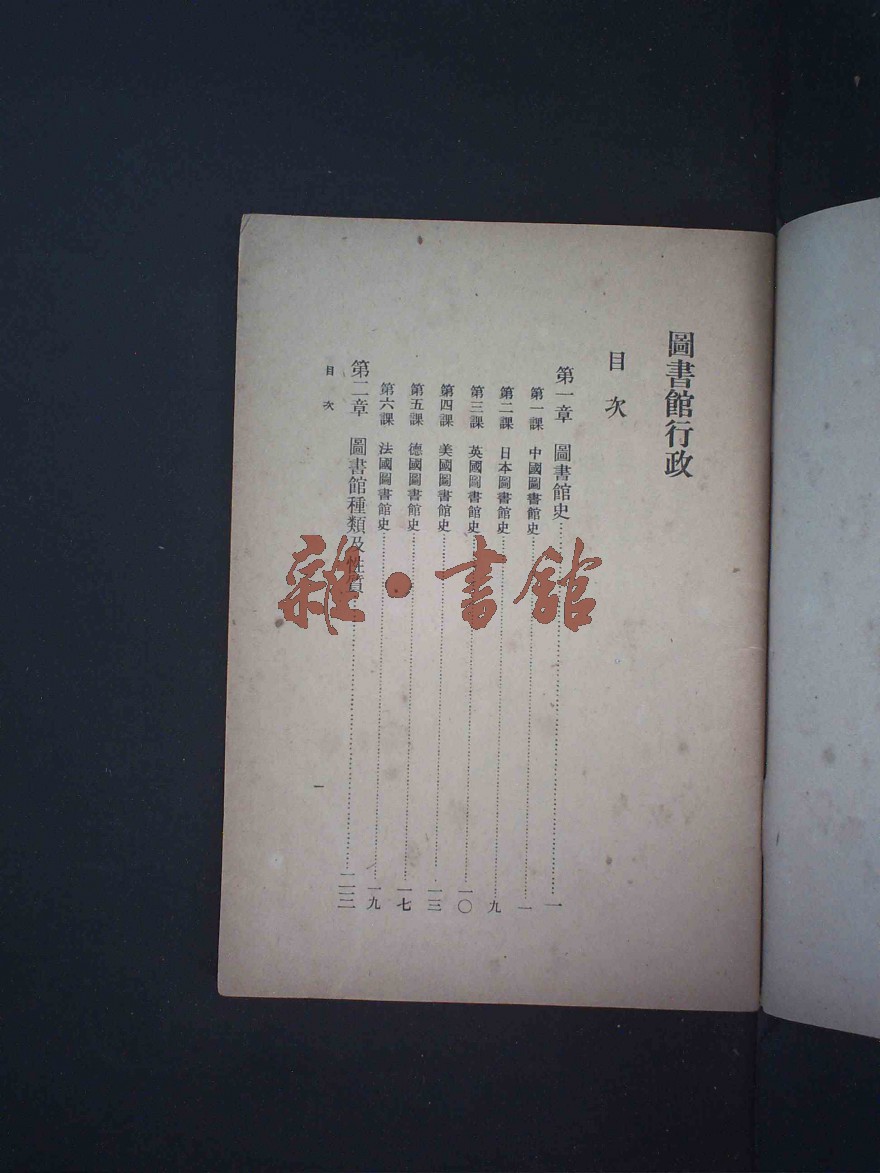 圖書館行政
目次
第一章 圖書館史……一
第一課 中國圖書館史……一
第二課 日本圖書館史……九
第三課 英國圖書館史……一〇
第四課 美國圖書館史……一三
第五課 德國圖書館史……一七
第六課 法國圖書館史……一九
第二章 圖書館種類及性質……二三
目次
一
雜·書館